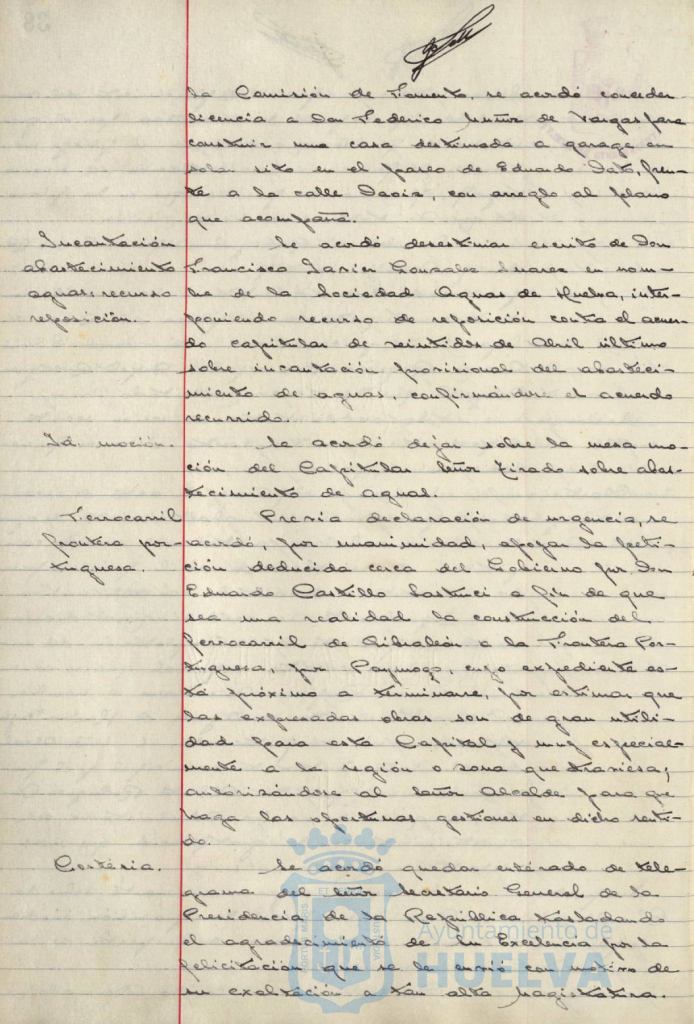 la Comisión de Fomento, se acordó conceder
licencia a Don Federico Muñoz de Vargas para
construir una casa destinada a garage en
solar sito en el paseo de Eduardo Dato, fren-
te a la calle Daoiz, con arreglo al plano
que acompaña.
Incautación
abastecimiento
aguas: recurso
reposición.
Se acordó desestimar escrito de Don
Francisco Javier Gonzalez Suarez en nom-
bre de la Sociedad Aguas de Huelva, inter-
poniendo recurso de reposición contra el acuer-
do capitular de veintidos de Abril último
sobre incautación provisional del abasteci-
miento de aguas, confirmándose el acuerdo
recurrido.
Id. moción.
Se acordó dejar sobre la mesa mo-
ción del Capitular Señor Tirado sobre abas-
tecimiento de aguas.
Ferrocarril
frontera por-
tuguesa.
Previa declaración de urgencia, se
acordó, por unanimidad, apoyar la peti-
ción deducida cerca del Gobierno por Don
Eduardo Castillo a fin de que
sea una realidad la construcción del
ferrocarril de Gibraleón a la Frontera Por-
tuguesa, por Paymogo, cuyo expediente es-
tá próximo a terminarse, por estimar que
las expresadas obras son de gran utili-
dad para esta Capital y muy especial-
mente a la región o zona que traviesa;
autorizándose al Señor Alcalde para que
haga las oportunas gestiones en dicho senti-
do.
Cortesia.
Se acordó quedar enterado de tele-
grama del Señor Secretario General de la
Presidencia de la República trasladando
el agradecimiento de Su Excelencia por la
felicitación que se le envió con motivo de
su exaltación a tan alta magistratura.
Ayuntamiento de
HUELVA